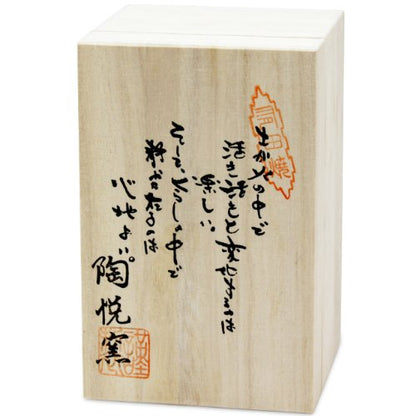 有田焼
土が火の中で
活き活きと変化するのは
楽しい。
そしてくらしの中で
静かに在るのは
心地よい。
陶悦窯